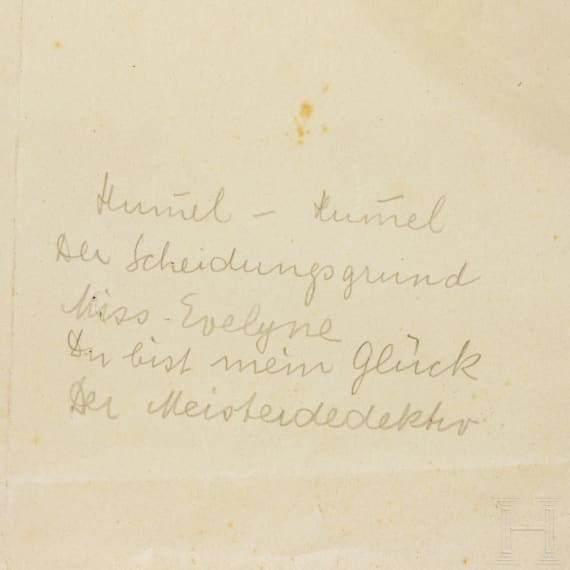 Hum̄el – Hum̄el
Der Scheidungsgrund
Miss Evelyne
Du bist mein Glück
Der Meisterdedektiv
H